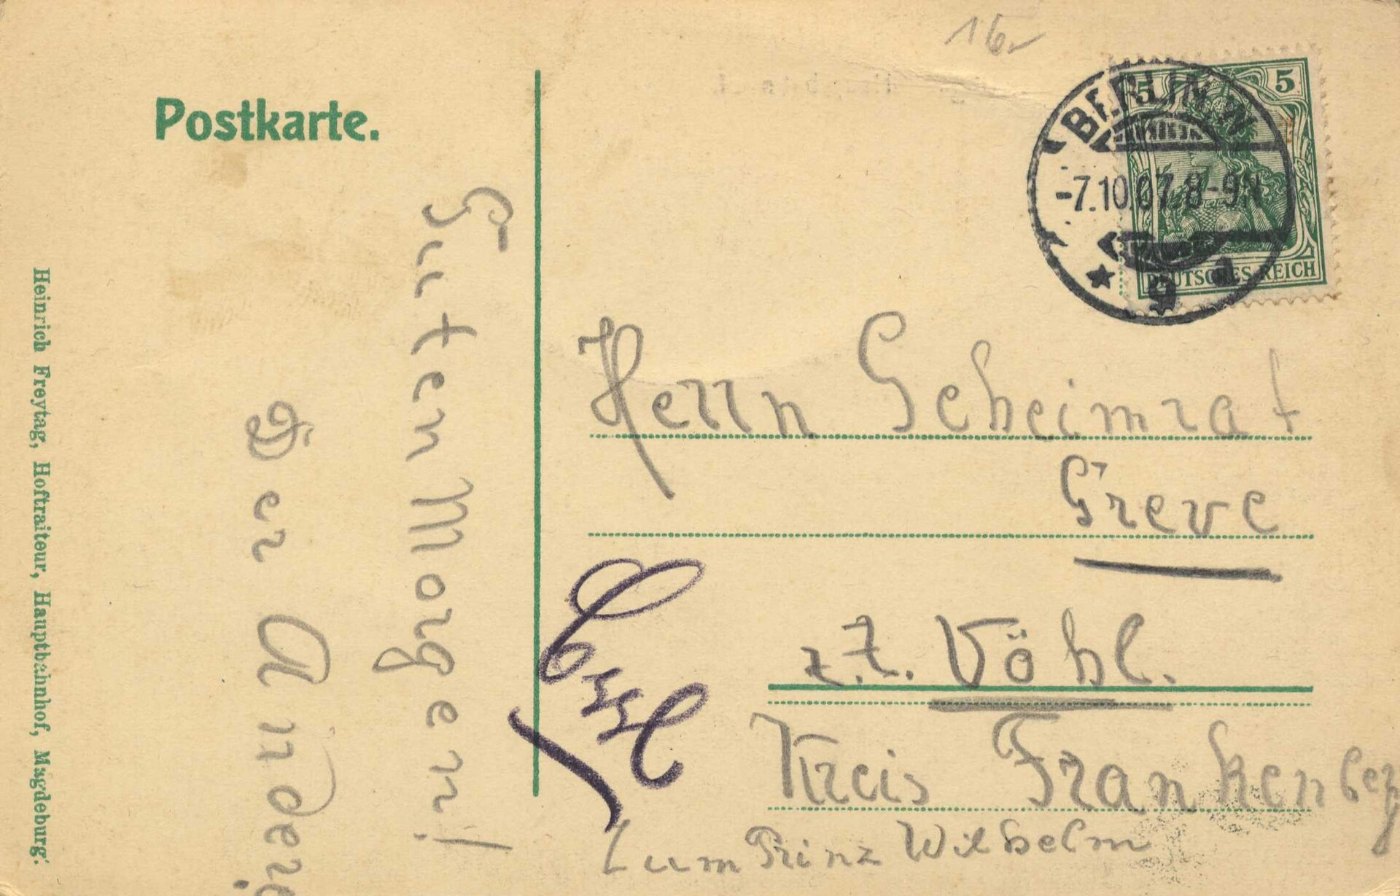 16
Postkarte.
BERLIN N
-7.10.07.8-9N
* 9
5
5
DEUTSCHES REICH
Heinrich Freytag, Hoftraiteur, Hauptbahnhof, Magdeburg.
Guten Morgen!
Der Andere
Herrn Geheimrat
Greve
z.Z. Vöhl.
Kreis Frankenberg
Zum Prinz Wilhelm